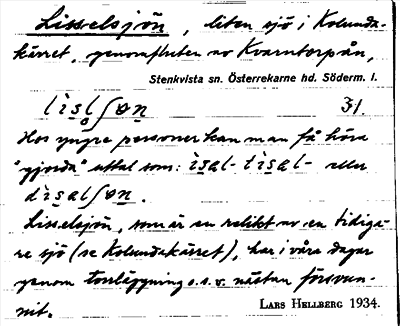 Lisselsjön, liten sjö i Kolunda-
kärret, genomfluten av Kvarntorpån,
Stenkvista sn. Österrekarne hd. Söderm. l.
lìsl̥ʃøn 31.
Hos yngre personer kan man få höra
"gjorda" uttal som: ìsal- tìsal- eller
dìsalʃøn.
Lisselsjön, som är en relikt av en tidiga-
re sjö (se Kolundakärret), har i våra dagar
genom torrläggning o.s.v. nästan försvun-
nit. LARS HELLBERG 1934.